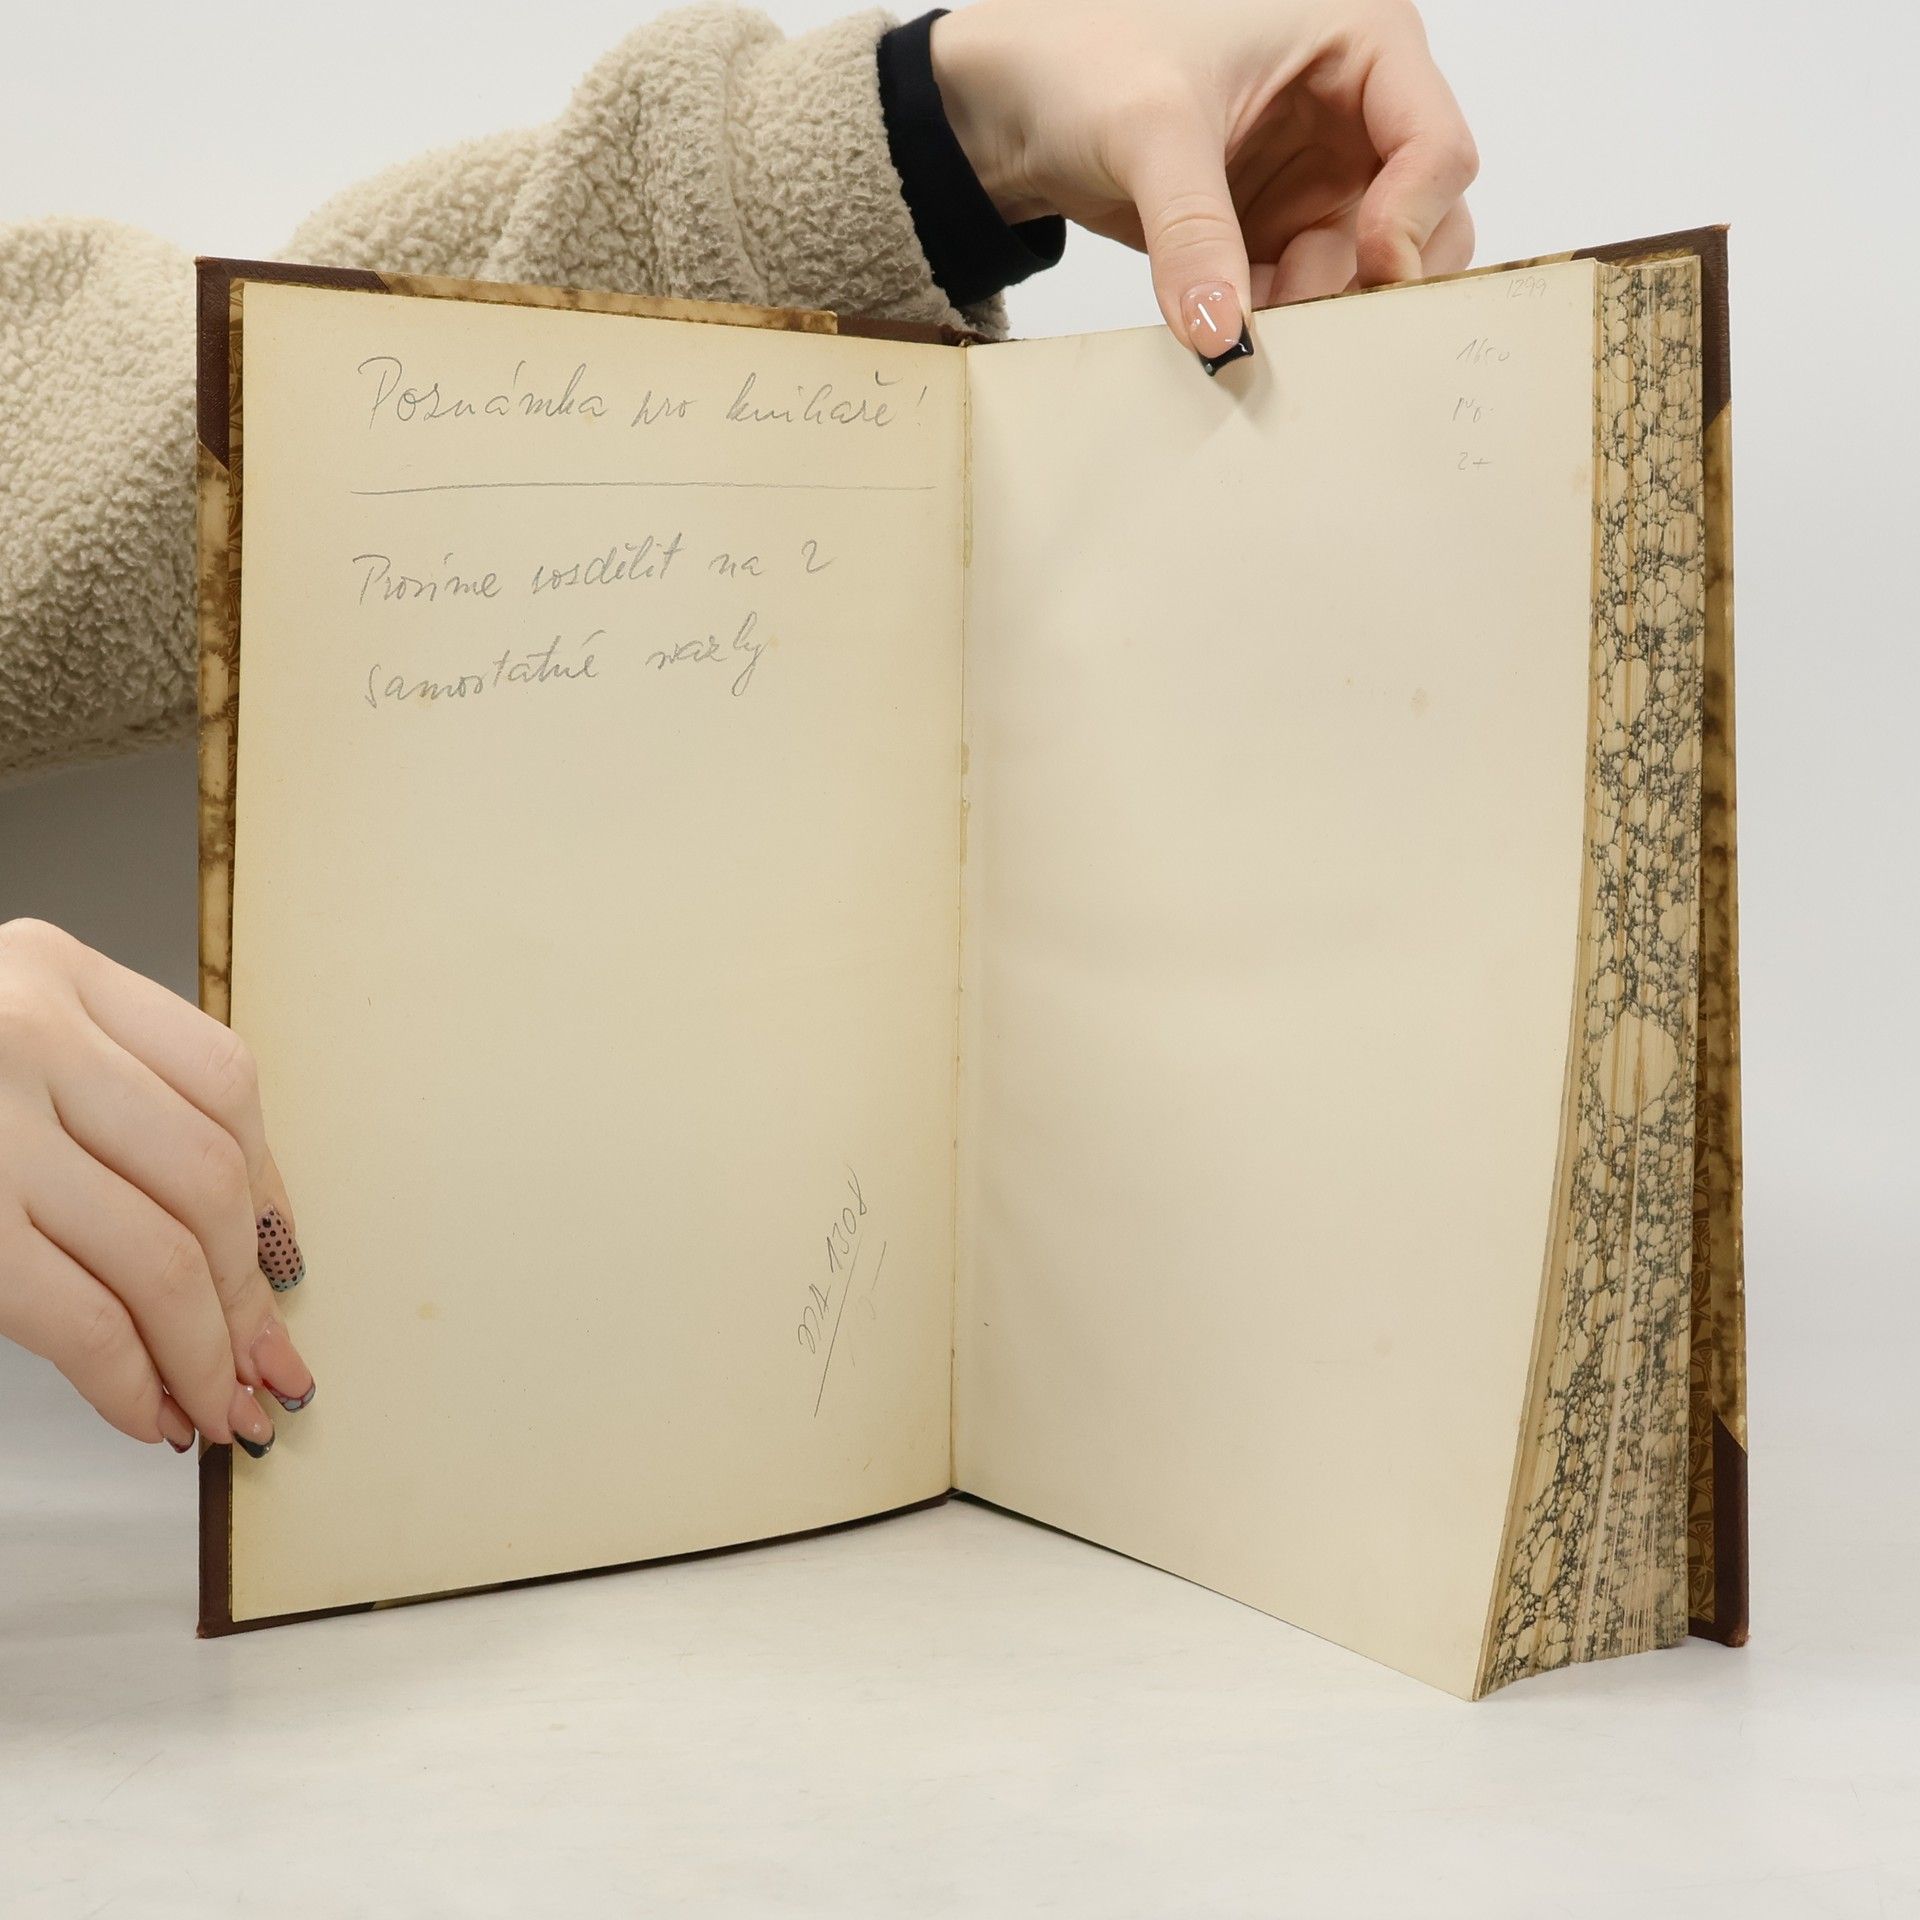 Poznámka pro knihaře!
Prosíme rozdělit na 2
samostatné svazky
1308
1299
1650
2+